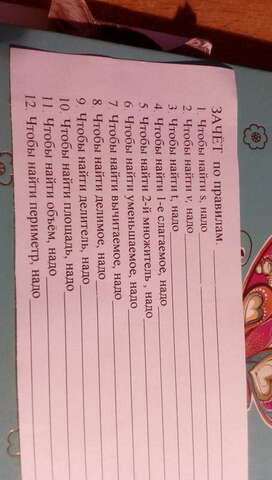 ЗАЧЁТ по правилам.
1. Чтобы найти s, надо
2. Чтобы найти v, надо
3. Чтобы найти t, надо
4. Чтобы найти 1-е слагаемое, надо
5. Чтобы найти 2-й множитель , надо
6. Чтобы найти уменьшаемое, надо
7. Чтобы найти вычитаемое, надо
8. Чтобы найти делимое, надо
9. Чтобы найти делитель, надо
10. Чтобы найти площадь, надо
11. Чтобы найти объём, надо
12. Чтобы найти периметр, надо